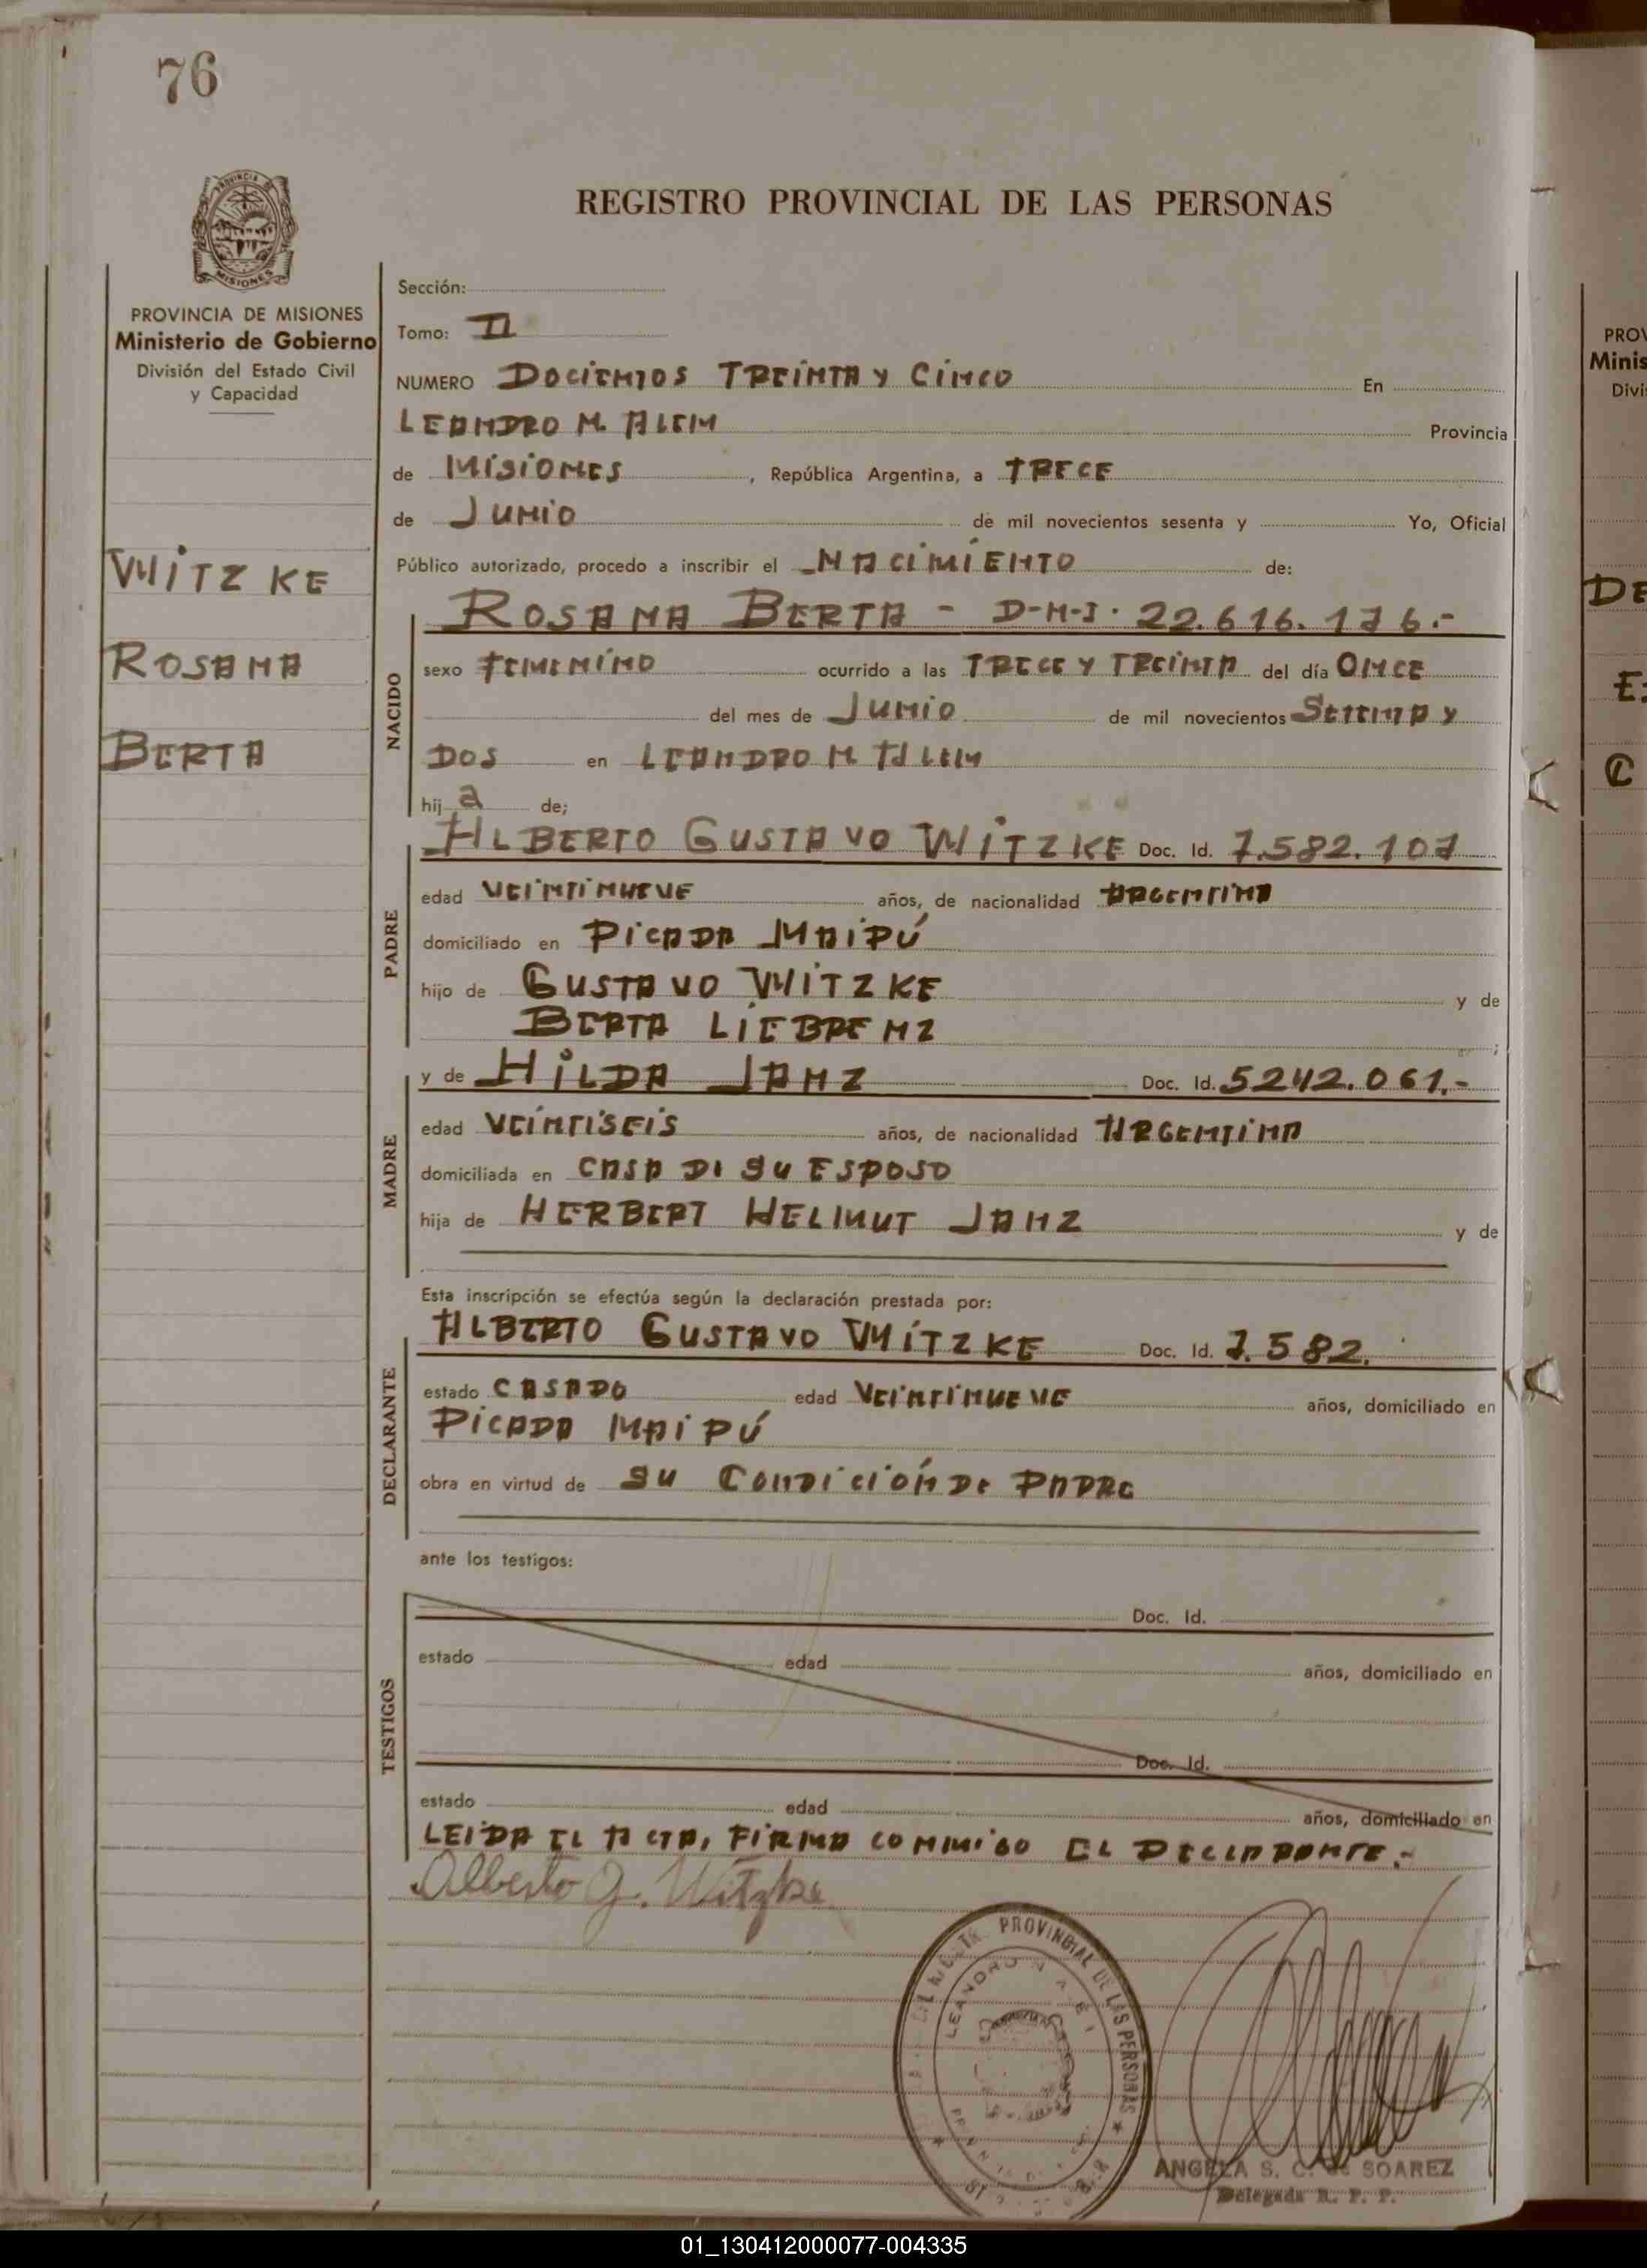 76
REGISTRO PROVINCIAL DE LAS PERSONAS
PROVINCIA DE MISIONES
Ministerio de Gobierno
División del Estado Civil
y Capacidad
WITZKE
ROSANA
BERTA
Sección:
Tomo: II
NUMERO DOCIENTOS TREINTA Y CINCO En
LEANDRO N. ALEM Provincia
de MISIONES, República Argentina, a TRECE
de JUNIO de mil novecientos sesenta y Yo, Oficial
Público autorizado, procedo a inscribir el NACIMIENTO de:
NACIDO
ROSANA BERTA - D-N-I. 22.616.176.-
sexo FEMENINO ocurrido a las TRECE Y TREINTA del día ONCE
del mes de JUNIO de mil novecientos SETENTA Y
DOS en LEANDRO N ALEM
hij a de;
PADRE
ALBERTO GUSTAVO WITZKE Doc. Id. 7.582.107
edad VEINTINUEVE años, de nacionalidad ARGENTINA
domiciliado en PICADA MAIPÚ
hijo de GUSTAVO WITZKE y de
BERTA LIEBRENZ ;
MADRE
y de HILDA JANZ Doc. Id. 5242.061.-
edad VEINTISEIS años, de nacionalidad ARGENTINA
domiciliada en CASA DE SU ESPOSO
hija de HERBERT HELMUT JANZ y de
Esta inscripción se efectúa según la declaración prestada por:
DECLARANTE
ALBERTO GUSTAVO WITZKE Doc. Id. 7.582.
estado CASADO edad VEINTINUEVE años, domiciliado en
PICADA MAIPÚ
obra en virtud de SU CONDICIÓN DE PADRE
ante los testigos:
TESTIGOS
Doc. Id.
estado edad años, domiciliado en
Doc. Id.
estado edad años, domiciliado en
LEIDA EL ACTA, FIRMA CONMIGO EL DECLARANTE.-
Alberto G. Witzke
PROVINCIAL DE LAS PERSONAS
LEANDRO N
ANGELA S. C. de SOAREZ
Delegada R. P. P.
PROV
Minis
Divi
DE
E
C
01_130412000077-004335